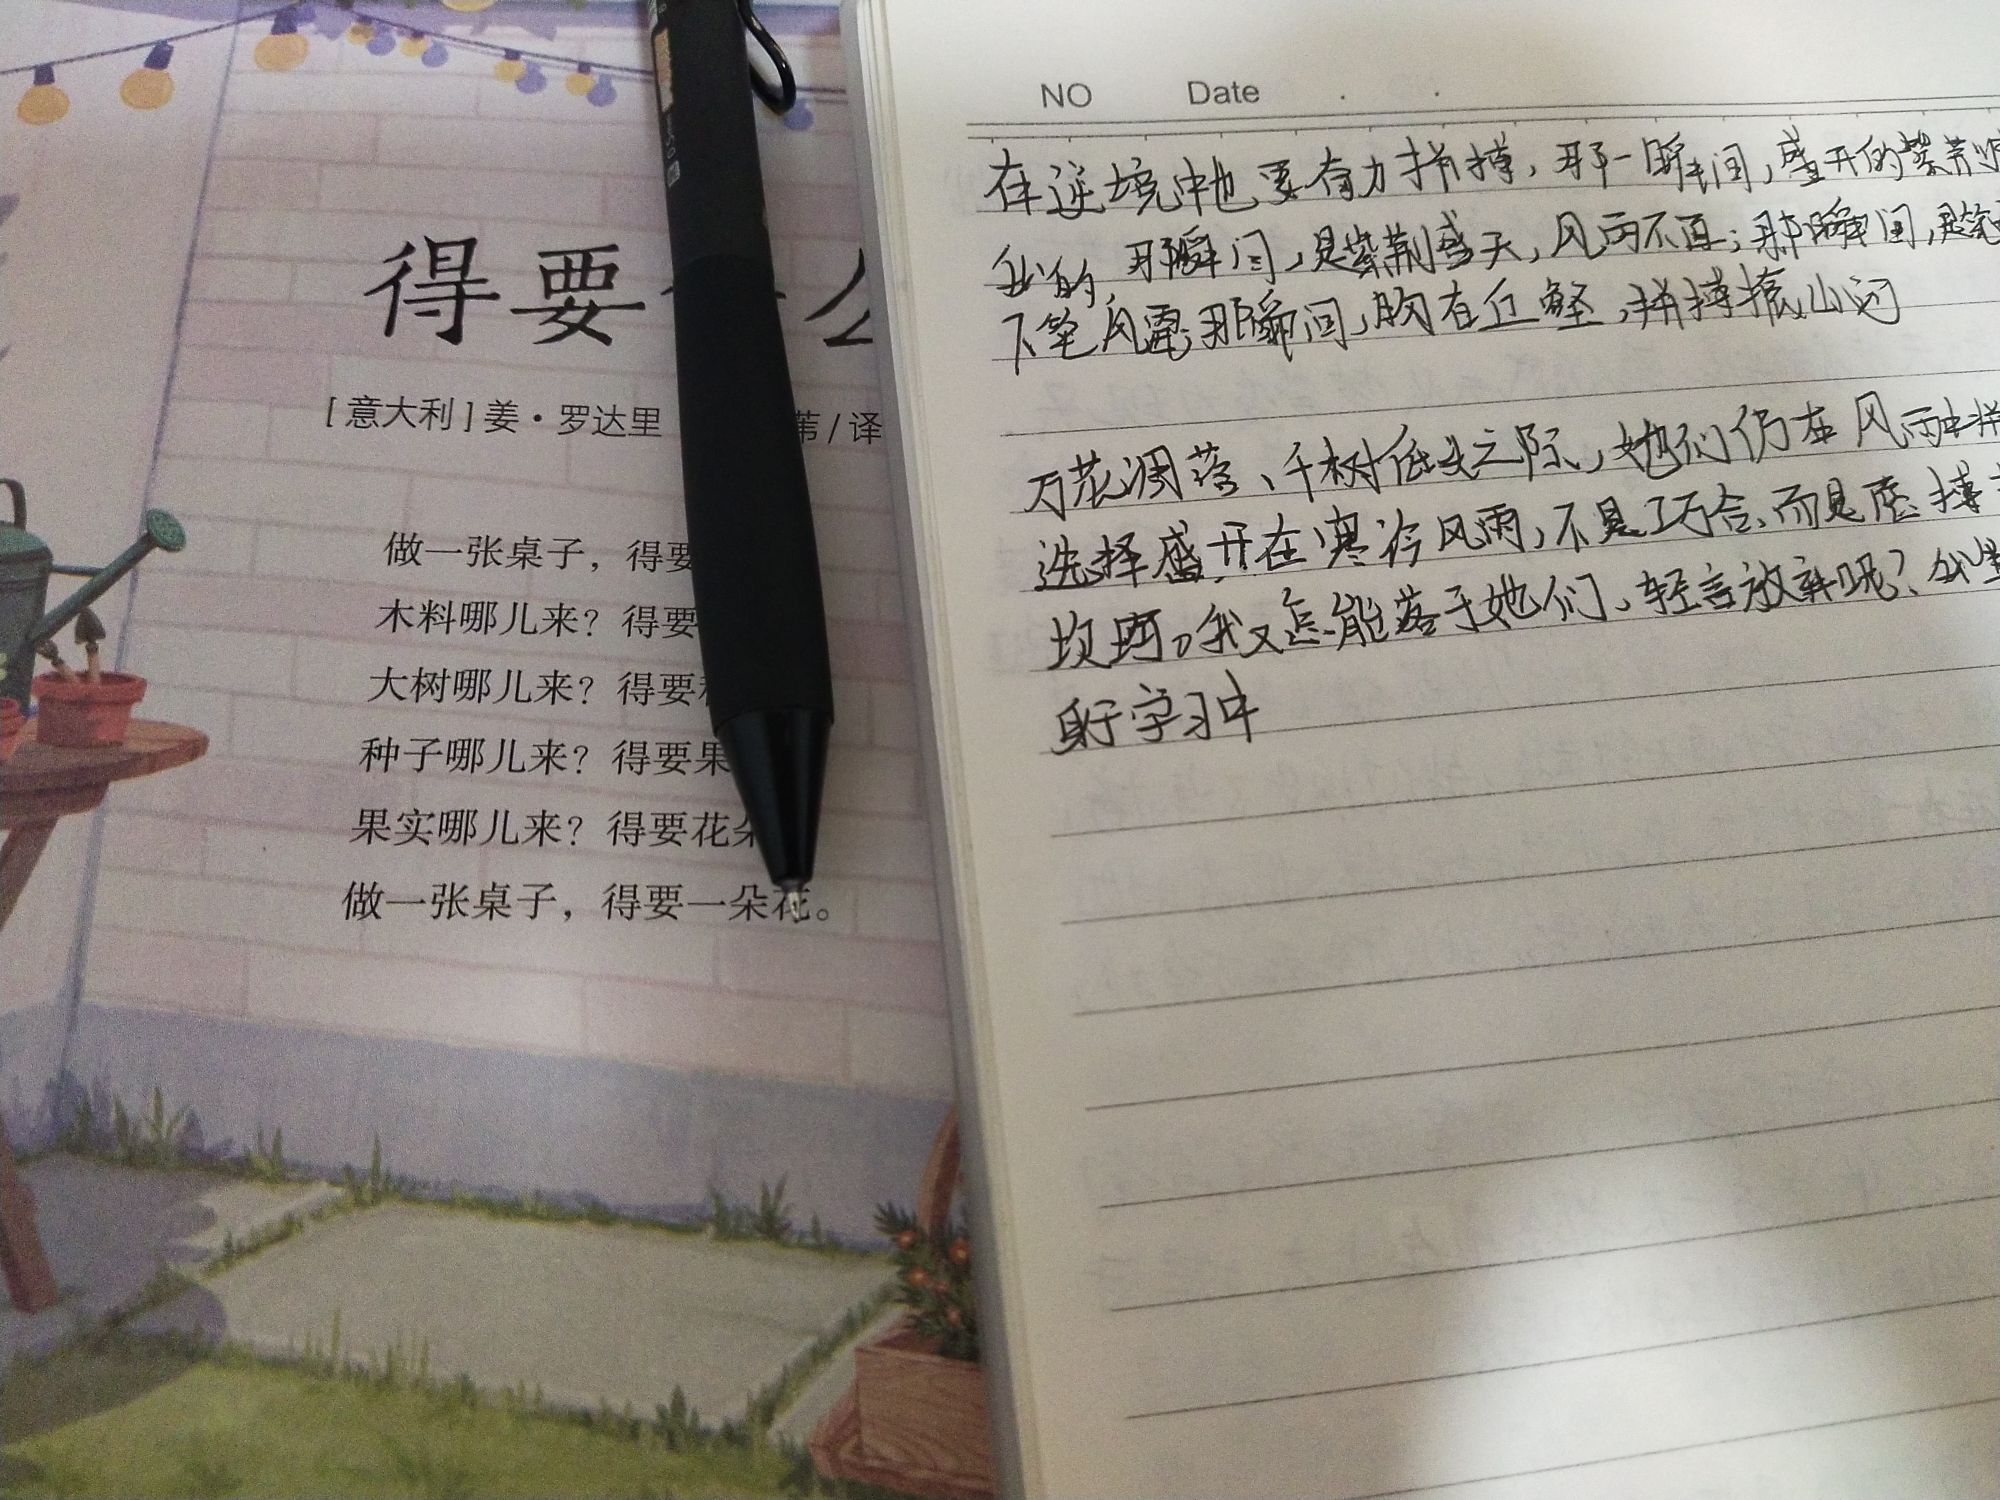 得要 么
[意大利]姜·罗达里 /译
做一张桌子，得要
木料哪儿来？得要
大树哪儿来？得要
种子哪儿来？得要果
果实哪儿来？得要花朵
做一张桌子，得要一朵花。
NO Date
在逆境中也要奋力拼搏，那一瞬间，盛开的紫荆
我的 那瞬间，是紫荆盛天，风雨不直；那瞬间，是
下笔风雷；那瞬间，胸有丘壑，拼搏振山河
万花凋落、千树低头之际，她们仍在风雨中拼
选择盛开在寒冷风雨，不是巧合、而是 搏
坎坷。我又怎能落于她们，轻言放弃呢？我
身于学习中